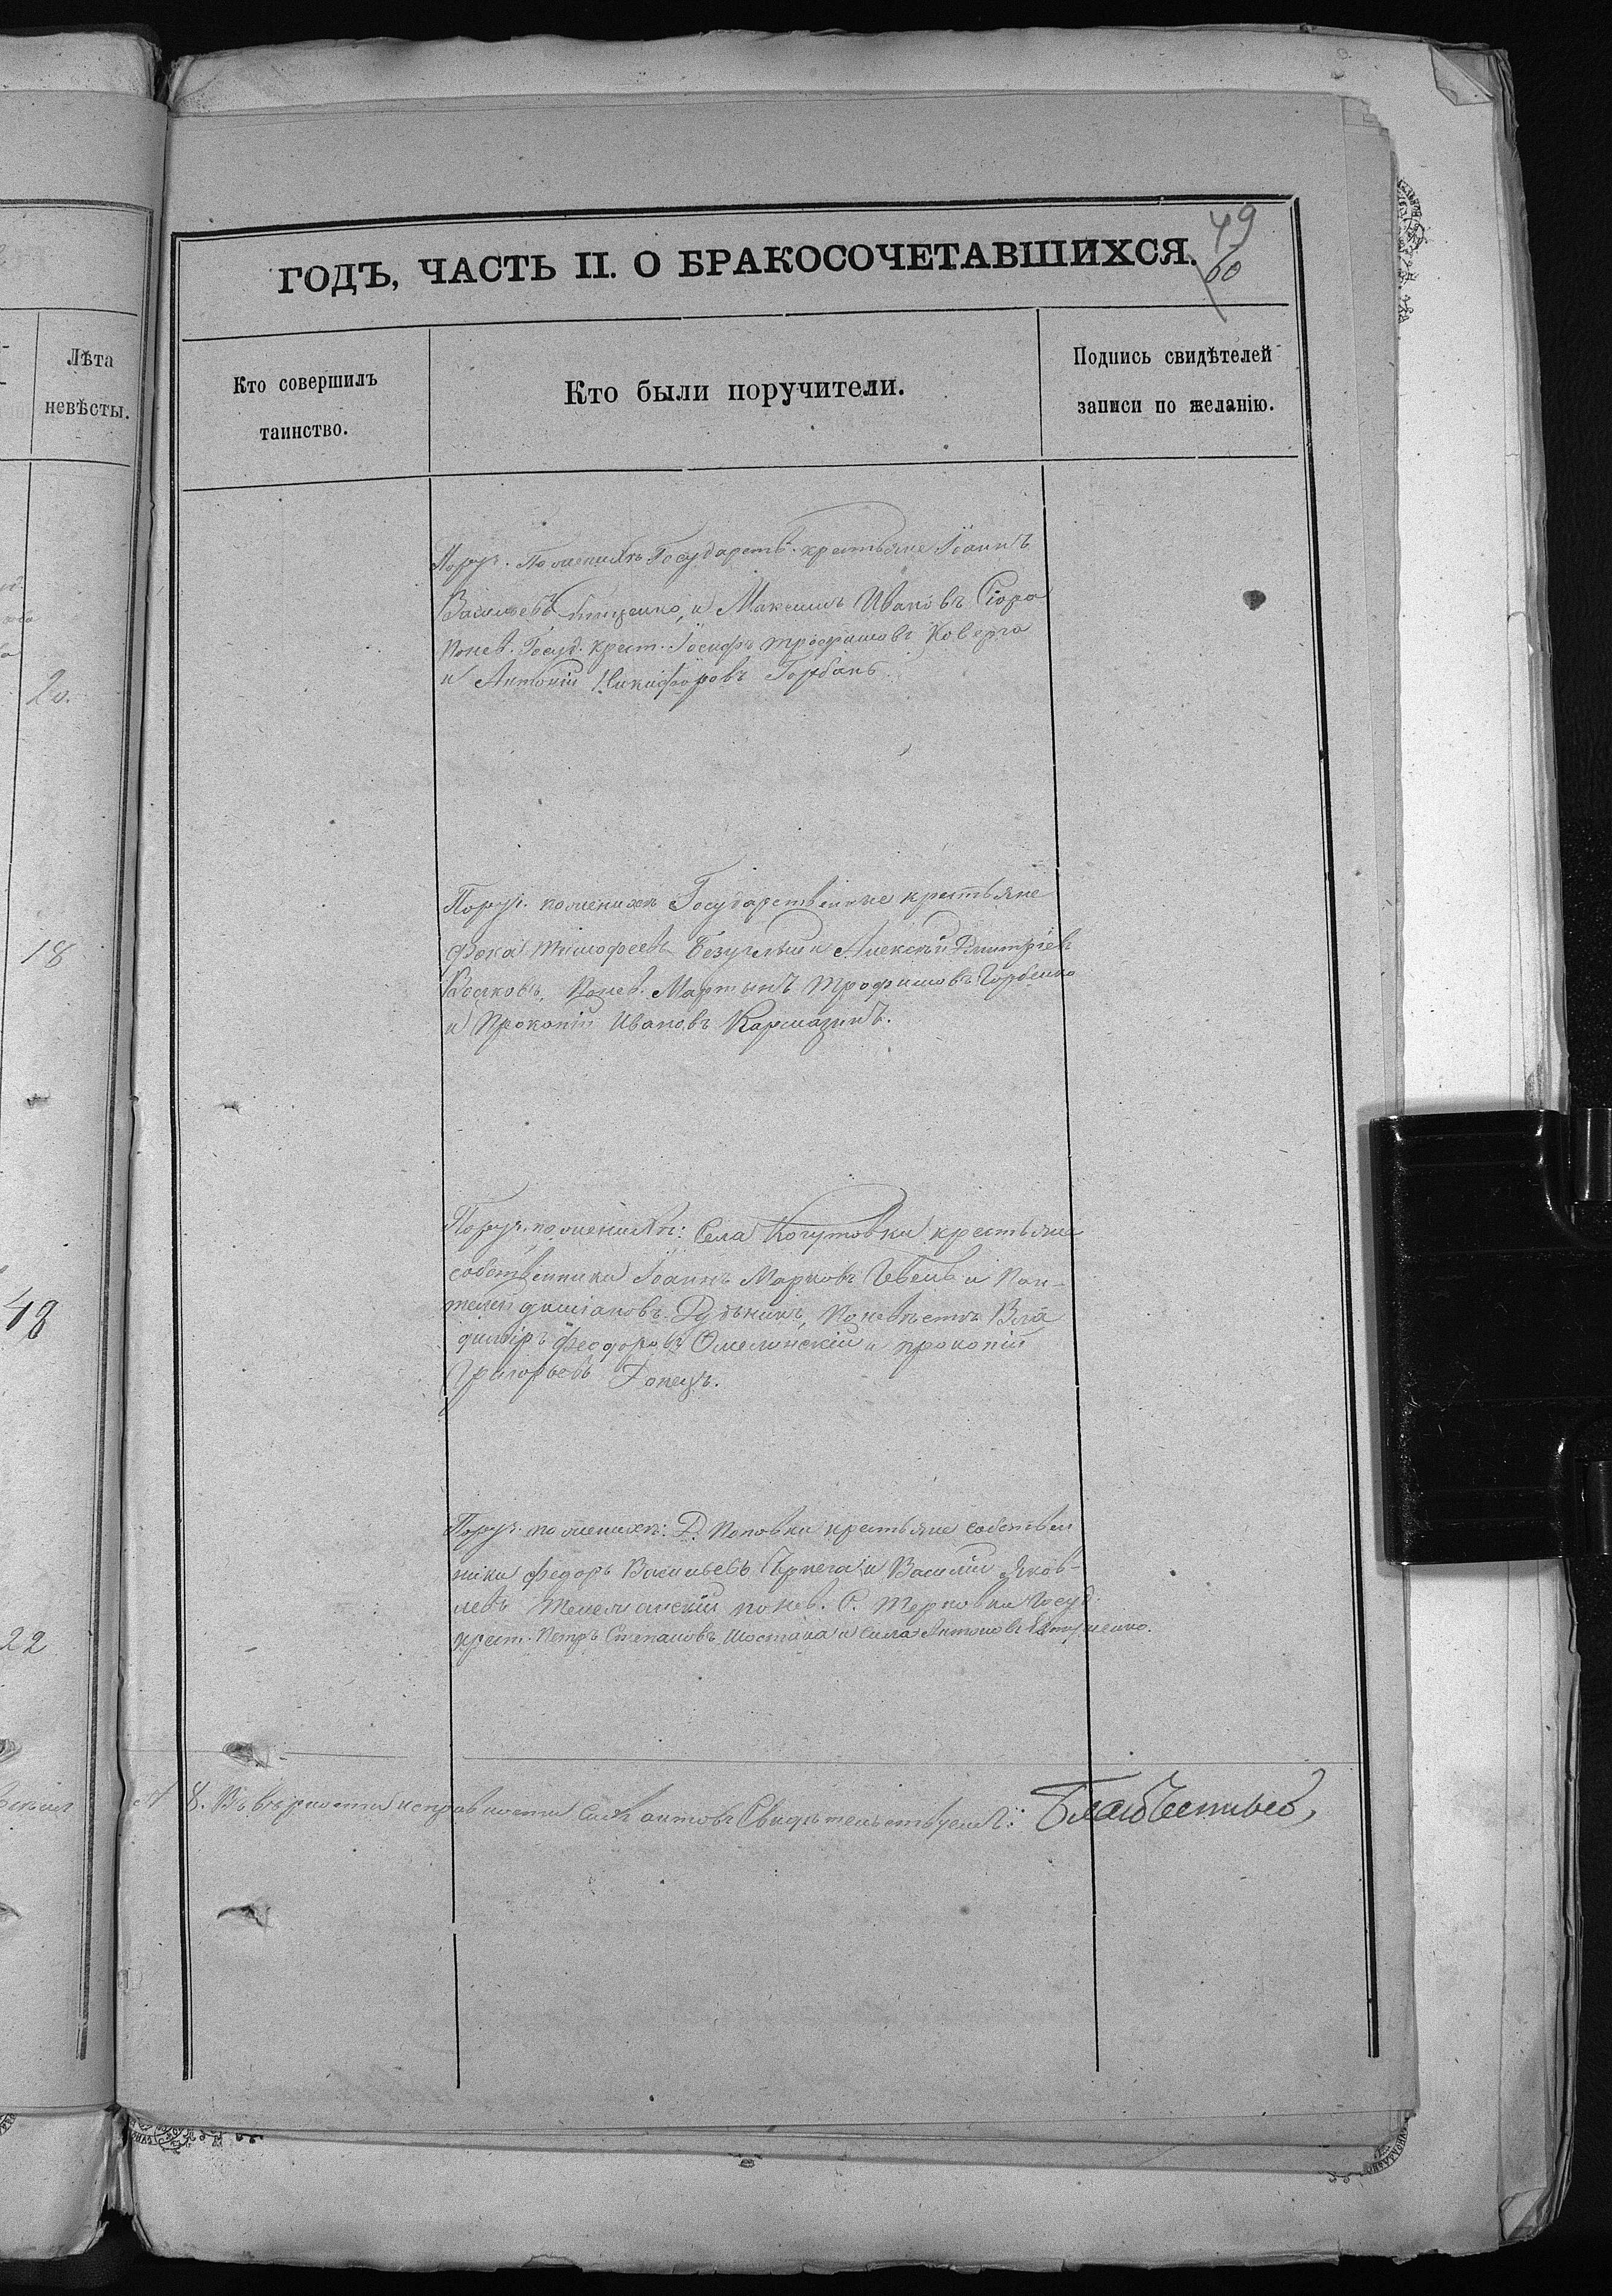 49
60
ГОДЪ, ЧАСТЬ II. О БРАКОСОЧЕТАВШИХСЯ.
Лѣта
невѣсты.
Кто совершилъ
таинство.
Кто были поручители.
Подпись свидѣтелей
записи по желанію.
Поруч. По женихѣ Государств. крестьяне Іоаннъ
Васильевъ и Максимъ Ивановъ Сюра
По нев. Госуд. крест. Іосифъ Трофимовъ Коверга
и Антоній Никифоровъ Горбань
20.
Поруч. по женихѣ Государственные крестьяне
Фока Тимофеевъ и Алексѣй Дмитріевъ
По нев. Мартынъ Трофимовъ Горбенко
и Прокопій Ивановъ Кармазинъ.
18
Поруч. по женихѣ: Села Когутовки крестьяне
собственники Іоаннъ Марковъ и Пан-
По невѣстѣ Вла
диміръ Феодоровъ Омелянскій и Прокопій
Григорьевъ Донецъ.
48
Поруч. по женихѣ: Д. Поповки крестьяне собствен
ники Федоръ Васильевъ и Василій Яков-
левъ по нев. С. Терновки Госуд.
крест. Петръ Степановъ Шостака и Сила Антоновъ
22
8. Въ вѣрности и исправности сихъ актовъ Свидѣтельствуемъ: